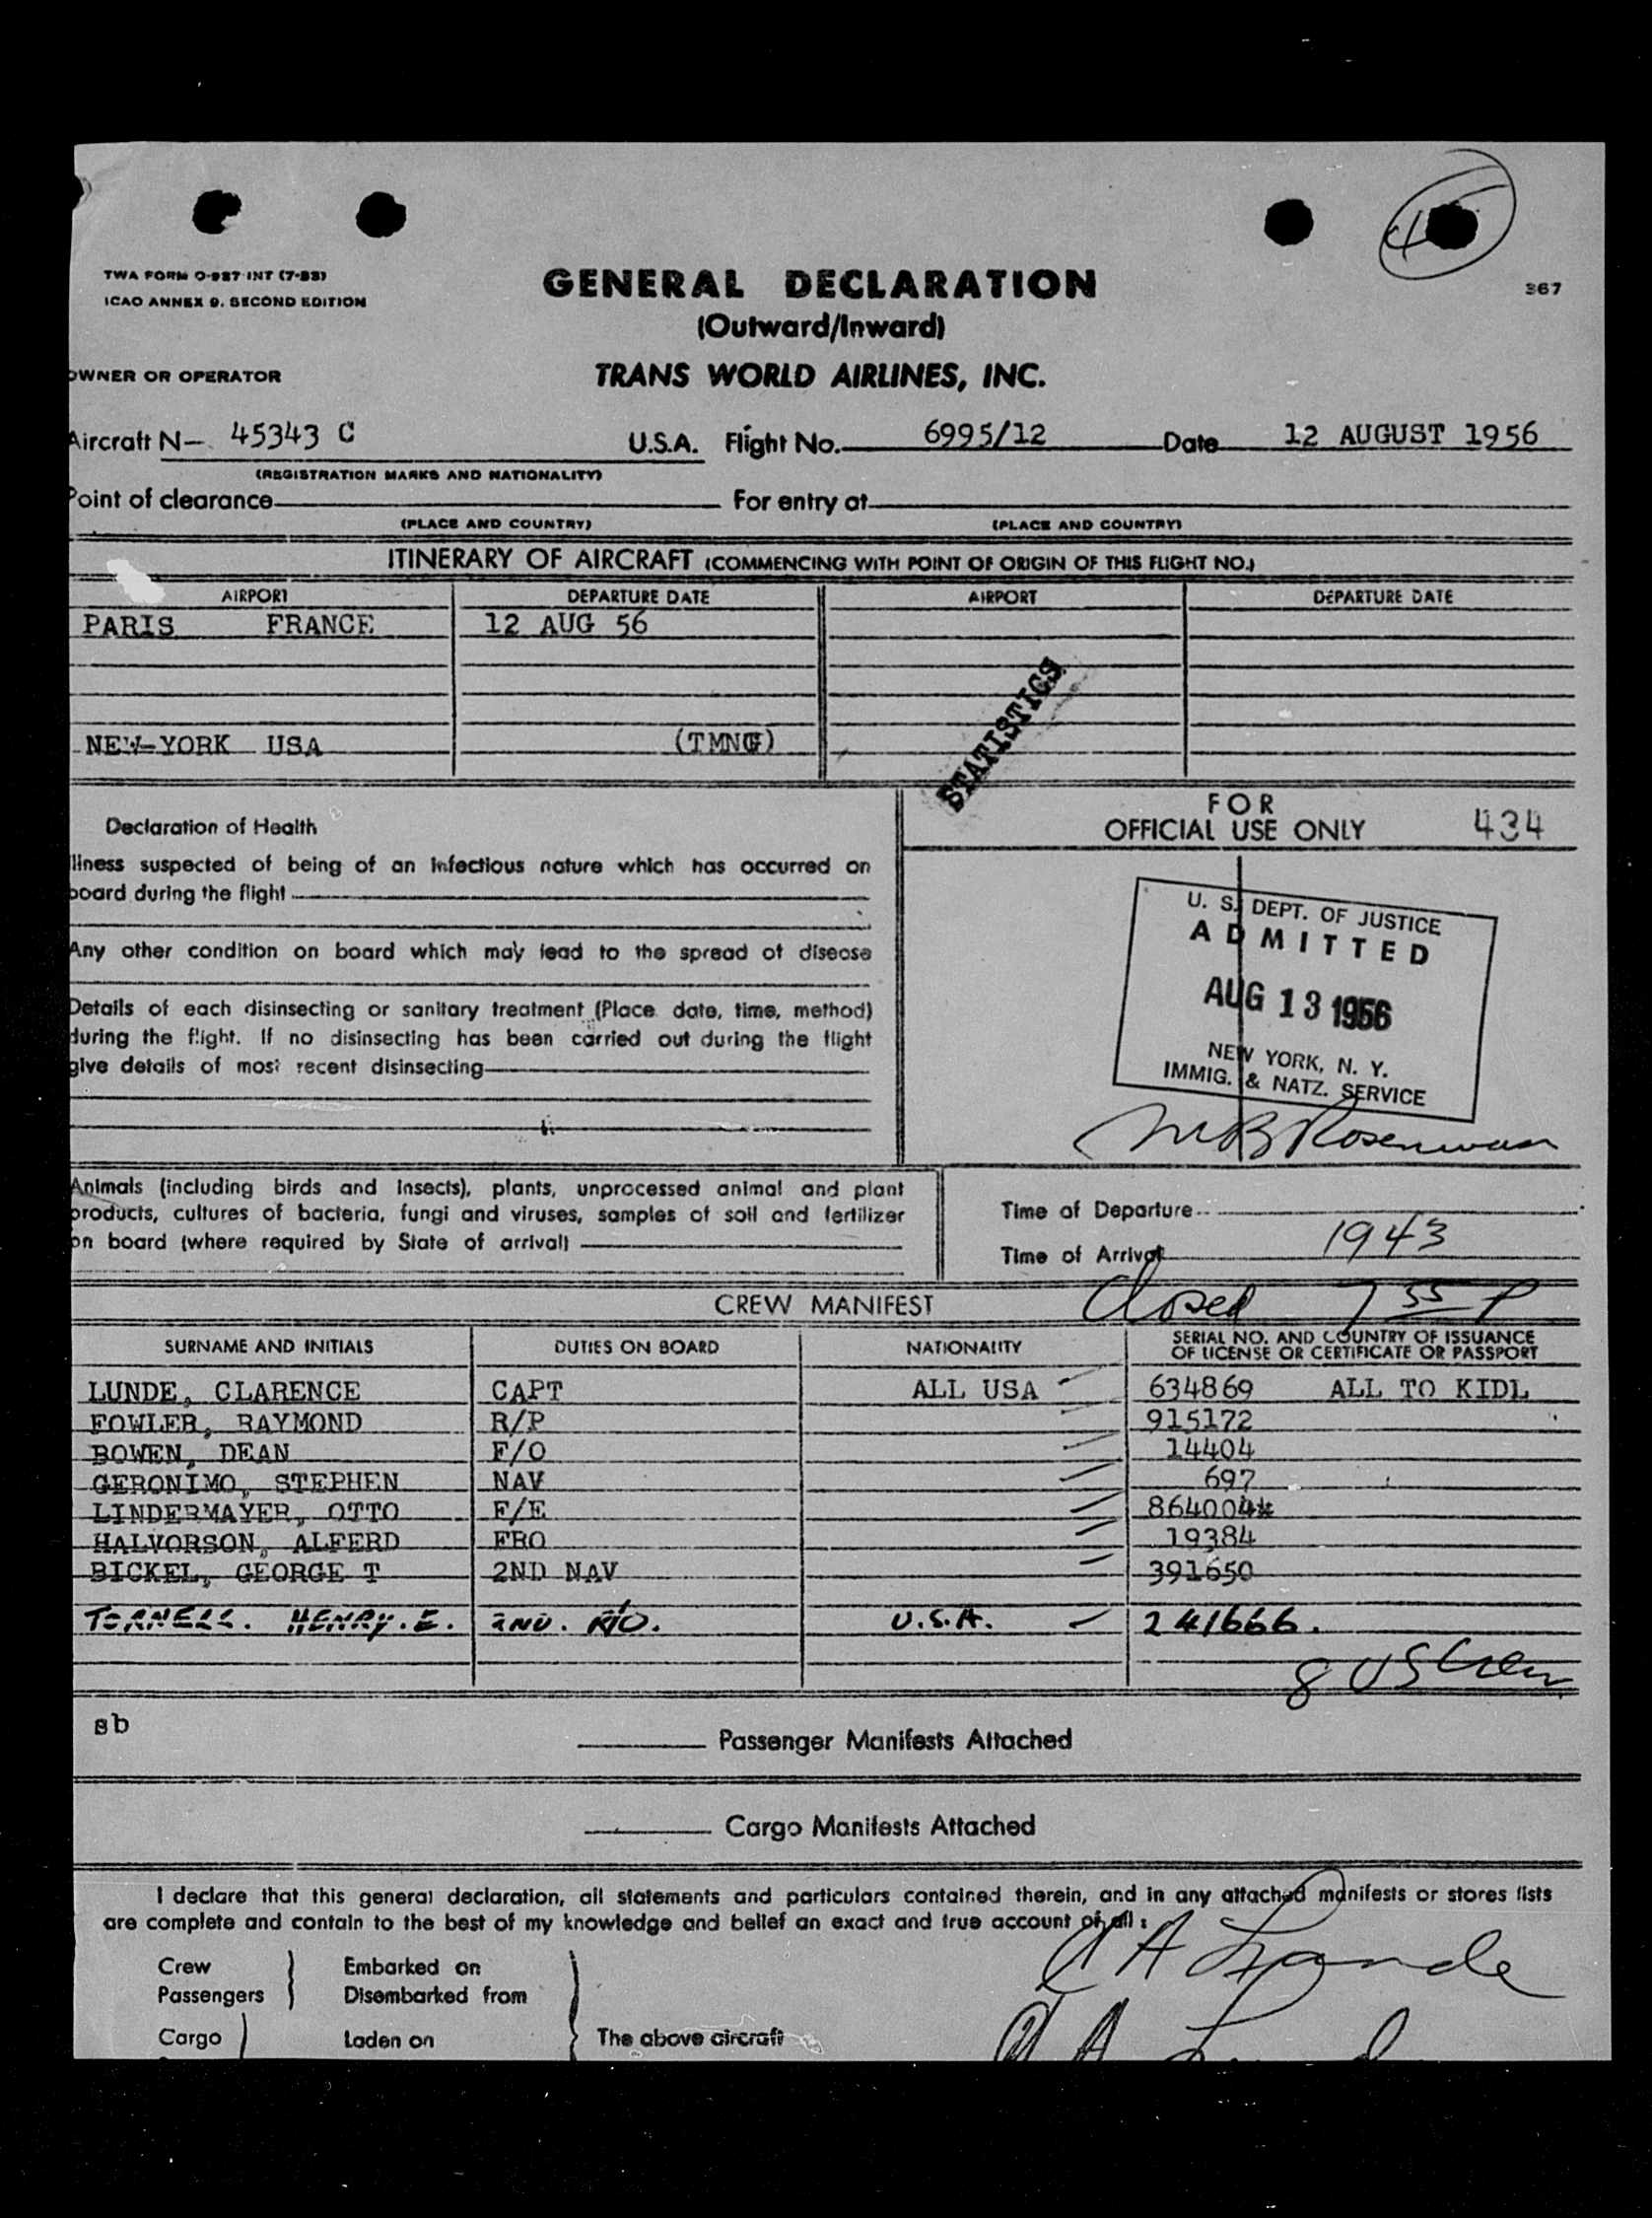 TWA FORM O-987 INT (7-53)
ICAO ANNEX 9. SECOND EDITION
GENERAL DECLARATION
(Outward/Inward)
367
OWNER OR OPERATOR
TRANS WORLD AIRLINES, INC.
Aircraft N- 45343 C U.S.A. Flight No. 6995/12 Date 12 AUGUST 1956
(REGISTRATION MARKS AND NATIONALITY)
Point of clearance For entry at
(PLACE AND COUNTRY) (PLACE AND COUNTRY)
ITINERARY OF AIRCRAFT (COMMENCING WITH POINT OF ORIGIN OF THIS FLIGHT NO.)
AIRPORT DEPARTURE DATE AIRPORT DEPARTURE DATE
PARIS FRANCE 12 AUG 56
STATISTICS
NEW-YORK USA (TMNG)
Declaration of Health
Illness suspected of being of an infectious nature which has occurred on
board during the flight
Any other condition on board which may lead to the spread of disease
Details of each disinsecting or sanitary treatment (Place date, time, method)
during the flight. If no disinsecting has been carried out during the flight
give details of most recent disinsecting
FOR
OFFICIAL USE ONLY 434
U. S. DEPT. OF JUSTICE
ADMITTED
AUG 13 1956
NEW YORK, N. Y.
IMMIG. & NATZ. SERVICE
Animals (including birds and insects), plants, unprocessed animal and plant
products, cultures of bacteria, fungi and viruses, samples of soil and fertilizer
on board (where required by State of arrival)
Time of Departure
Time of Arrival 1943
Closed 7 55 P
CREW MANIFEST
SURNAME AND INITIALS DUTIES ON BOARD NATIONALITY SERIAL NO. AND COUNTRY OF ISSUANCE
OF LICENSE OR CERTIFICATE OR PASSPORT
LUNDE, CLARENCE CAPT ALL USA 634869 ALL TO KIDL
FOWLER, RAYMOND R/P 915172
BOWEN, DEAN F/O 14404
GERONIMO, STEPHEN NAV 697
LINDERMAYER, OTTO F/E 864004
HALVORSON, ALFERD FRO 19384
BICKEL, GEORGE T 2ND NAV 391650
HENRY. E. 2ND. R/O. U.S.A. 241666.
8 US Crew
sb
Passenger Manifests Attached
Cargo Manifests Attached
I declare that this general declaration, all statements and particulars contained therein, and in any attached manifests or stores lists
are complete and contain to the best of my knowledge and belief an exact and true account of all :
C A Lunde
Crew Embarked on
Passengers Disembarked from
Cargo Laden on The above aircraft